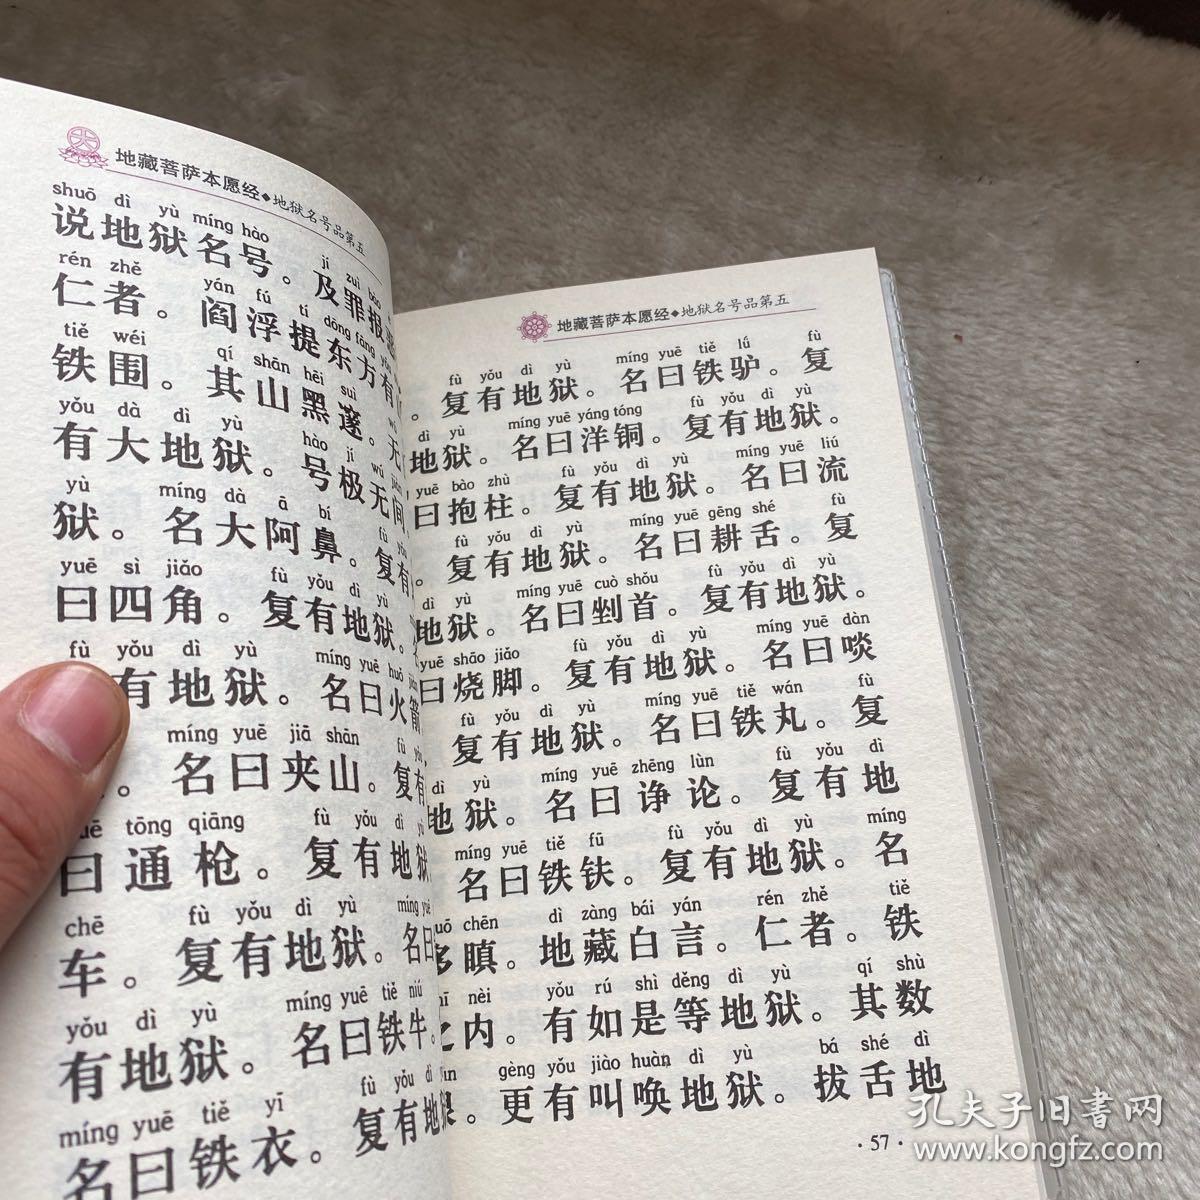 地藏菩萨本愿经◆地狱名号品第五
shuō dì yù míng hào
说地狱名号。及罪报
jí zuì bào
rén zhě yán fú tí dōng fāng yǒu
仁者。阎浮提东方有
tiě wéi qí shān hēi suì wú
铁围。其山黑邃。无
yǒu dà dì yù hào jí wú jiān
有大地狱。号极无间
yù míng dà ā bí fù yǒu
狱。名大阿鼻。复有
yuē sì jiǎo fù yǒu dì yù
曰四角。复有地狱。
fù yǒu dì yù míng yuē huǒ jiàn
有地狱。名曰火箭
míng yuē jiā shān fù yǒu
。名曰夹山。复有
tōng qiāng fù yǒu dì
曰通枪。复有地狱
chē fù yǒu dì yù míng yuē
车。复有地狱。名曰
yǒu dì yù míng yuē tiě niú
有地狱。名曰铁牛。
míng yuē tiě yī fù yǒu dì
名曰铁衣。复有地
地藏菩萨本愿经◆地狱名号品第五
fù yǒu dì yù míng yuē tiě lǘ fù
。复有地狱。名曰铁驴。复
dì yù míng yuē yáng tóng fù yǒu dì yù
地狱。名曰洋铜。复有地狱。
yuē bào zhù fù yǒu dì yù míng yuē liú
曰抱柱。复有地狱。名曰流
fù yǒu dì yù míng yuē gēng shé fù
。复有地狱。名曰耕舌。复
dì yù míng yuē cuò shǒu fù yǒu dì yù
地狱。名曰剉首。复有地狱。
yuē shāo jiǎo fù yǒu dì yù míng yuē dàn
曰烧脚。复有地狱。名曰啖
fù yǒu dì yù míng yuē tiě wán fù
复有地狱。名曰铁丸。复
dì yù míng yuē zhēng lùn fù yǒu dì
地狱。名曰诤论。复有地
míng yuē tiě fū fù yǒu dì yù míng
名曰铁𫓧。复有地狱。名
chēn dì zàng bái yán rén zhě tiě
多瞋。地藏白言。仁者。铁
nèi yǒu rú shì děng dì yù qí shù
之内。有如是等地狱。其数
gèng yǒu jiào huàn dì yù bá shé dì
限。更有叫唤地狱。拔舌地
·57·
孔夫子旧书网
www.kongfz.com